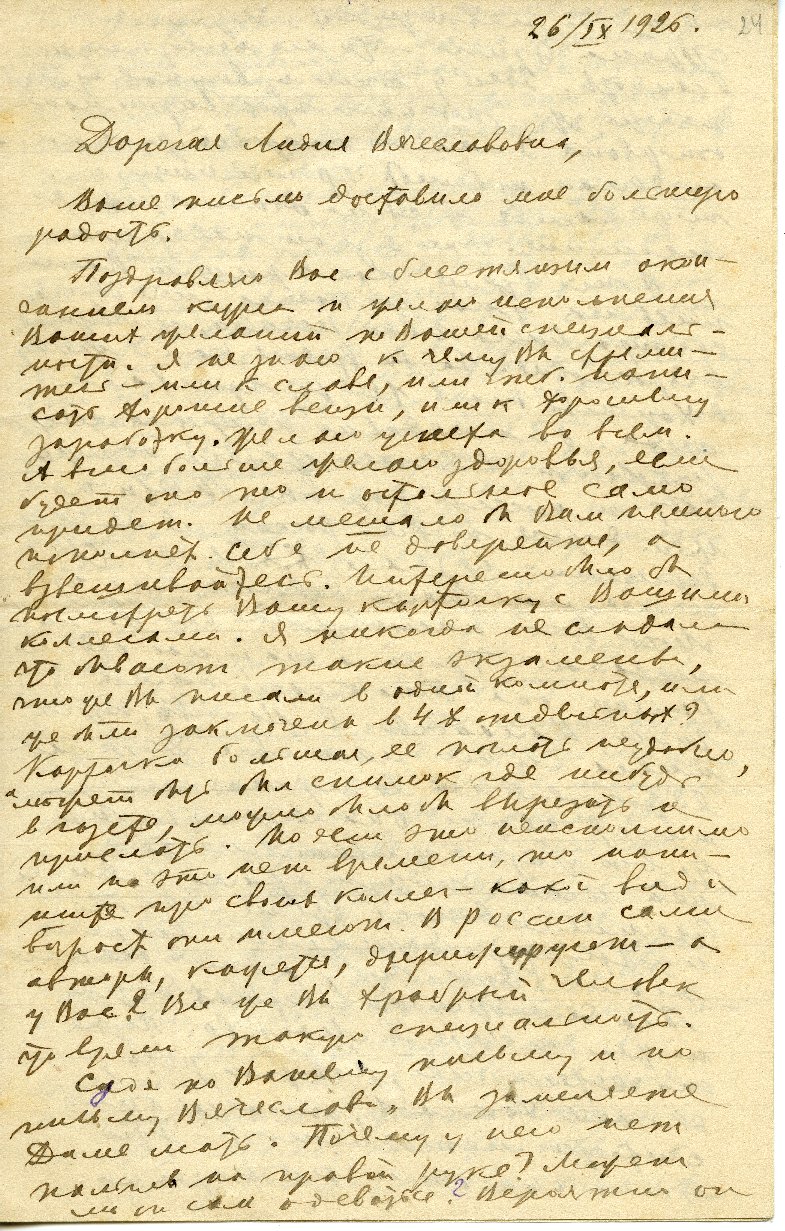 26/IX 1926. 24
Дорогая Лидия Вячеславовна,
Ваше письмо доставило мне большую
радость.
Поздравляю Вас с блестящим окон-
чанием курса и желаю исполнения
Ваших желаний по Вашей специаль-
ности. Я не знаю к чему Вы стреми-
тесь – или к славе, или чтоб. напи-
сать хорошие вещи, или к хорошему
заработку. Желаю успеха во всем.
А еще больше желаю здоровья, если
будет оно то и остальное само
придет. Не мешало б Вам немного
пополнеть. Себе не доверяйте, а
взвешивайтесь. Интересно было б
посмотреть Вашу карточку с Вашими
коллегами. Я никогда не слыхала
что бывают такие экзамены,
что же Вы писали в одной комнате, или
же были заключены в 4х отдельных?
Карточка большая, ее послать неудобно,
а может быть был снимок где нибудь
в газете, можно было б вырезать и
прислать. Но если это неисполнимо
или на это нет времени, то напи-
шите про своих коллег – какой вид и
возраст они имеют. В России сами
авторы, кажется, дирижируют – а
у Вас? Все же Вы храбрый человек
что взяли такую специальность.
Судя по Вашему письму и по
письму Вячеслава, Вы заменяете
Диме мать. Почему у него нет
пальцев на правой руке? Может
ли он сам одеваться? Вероятно он